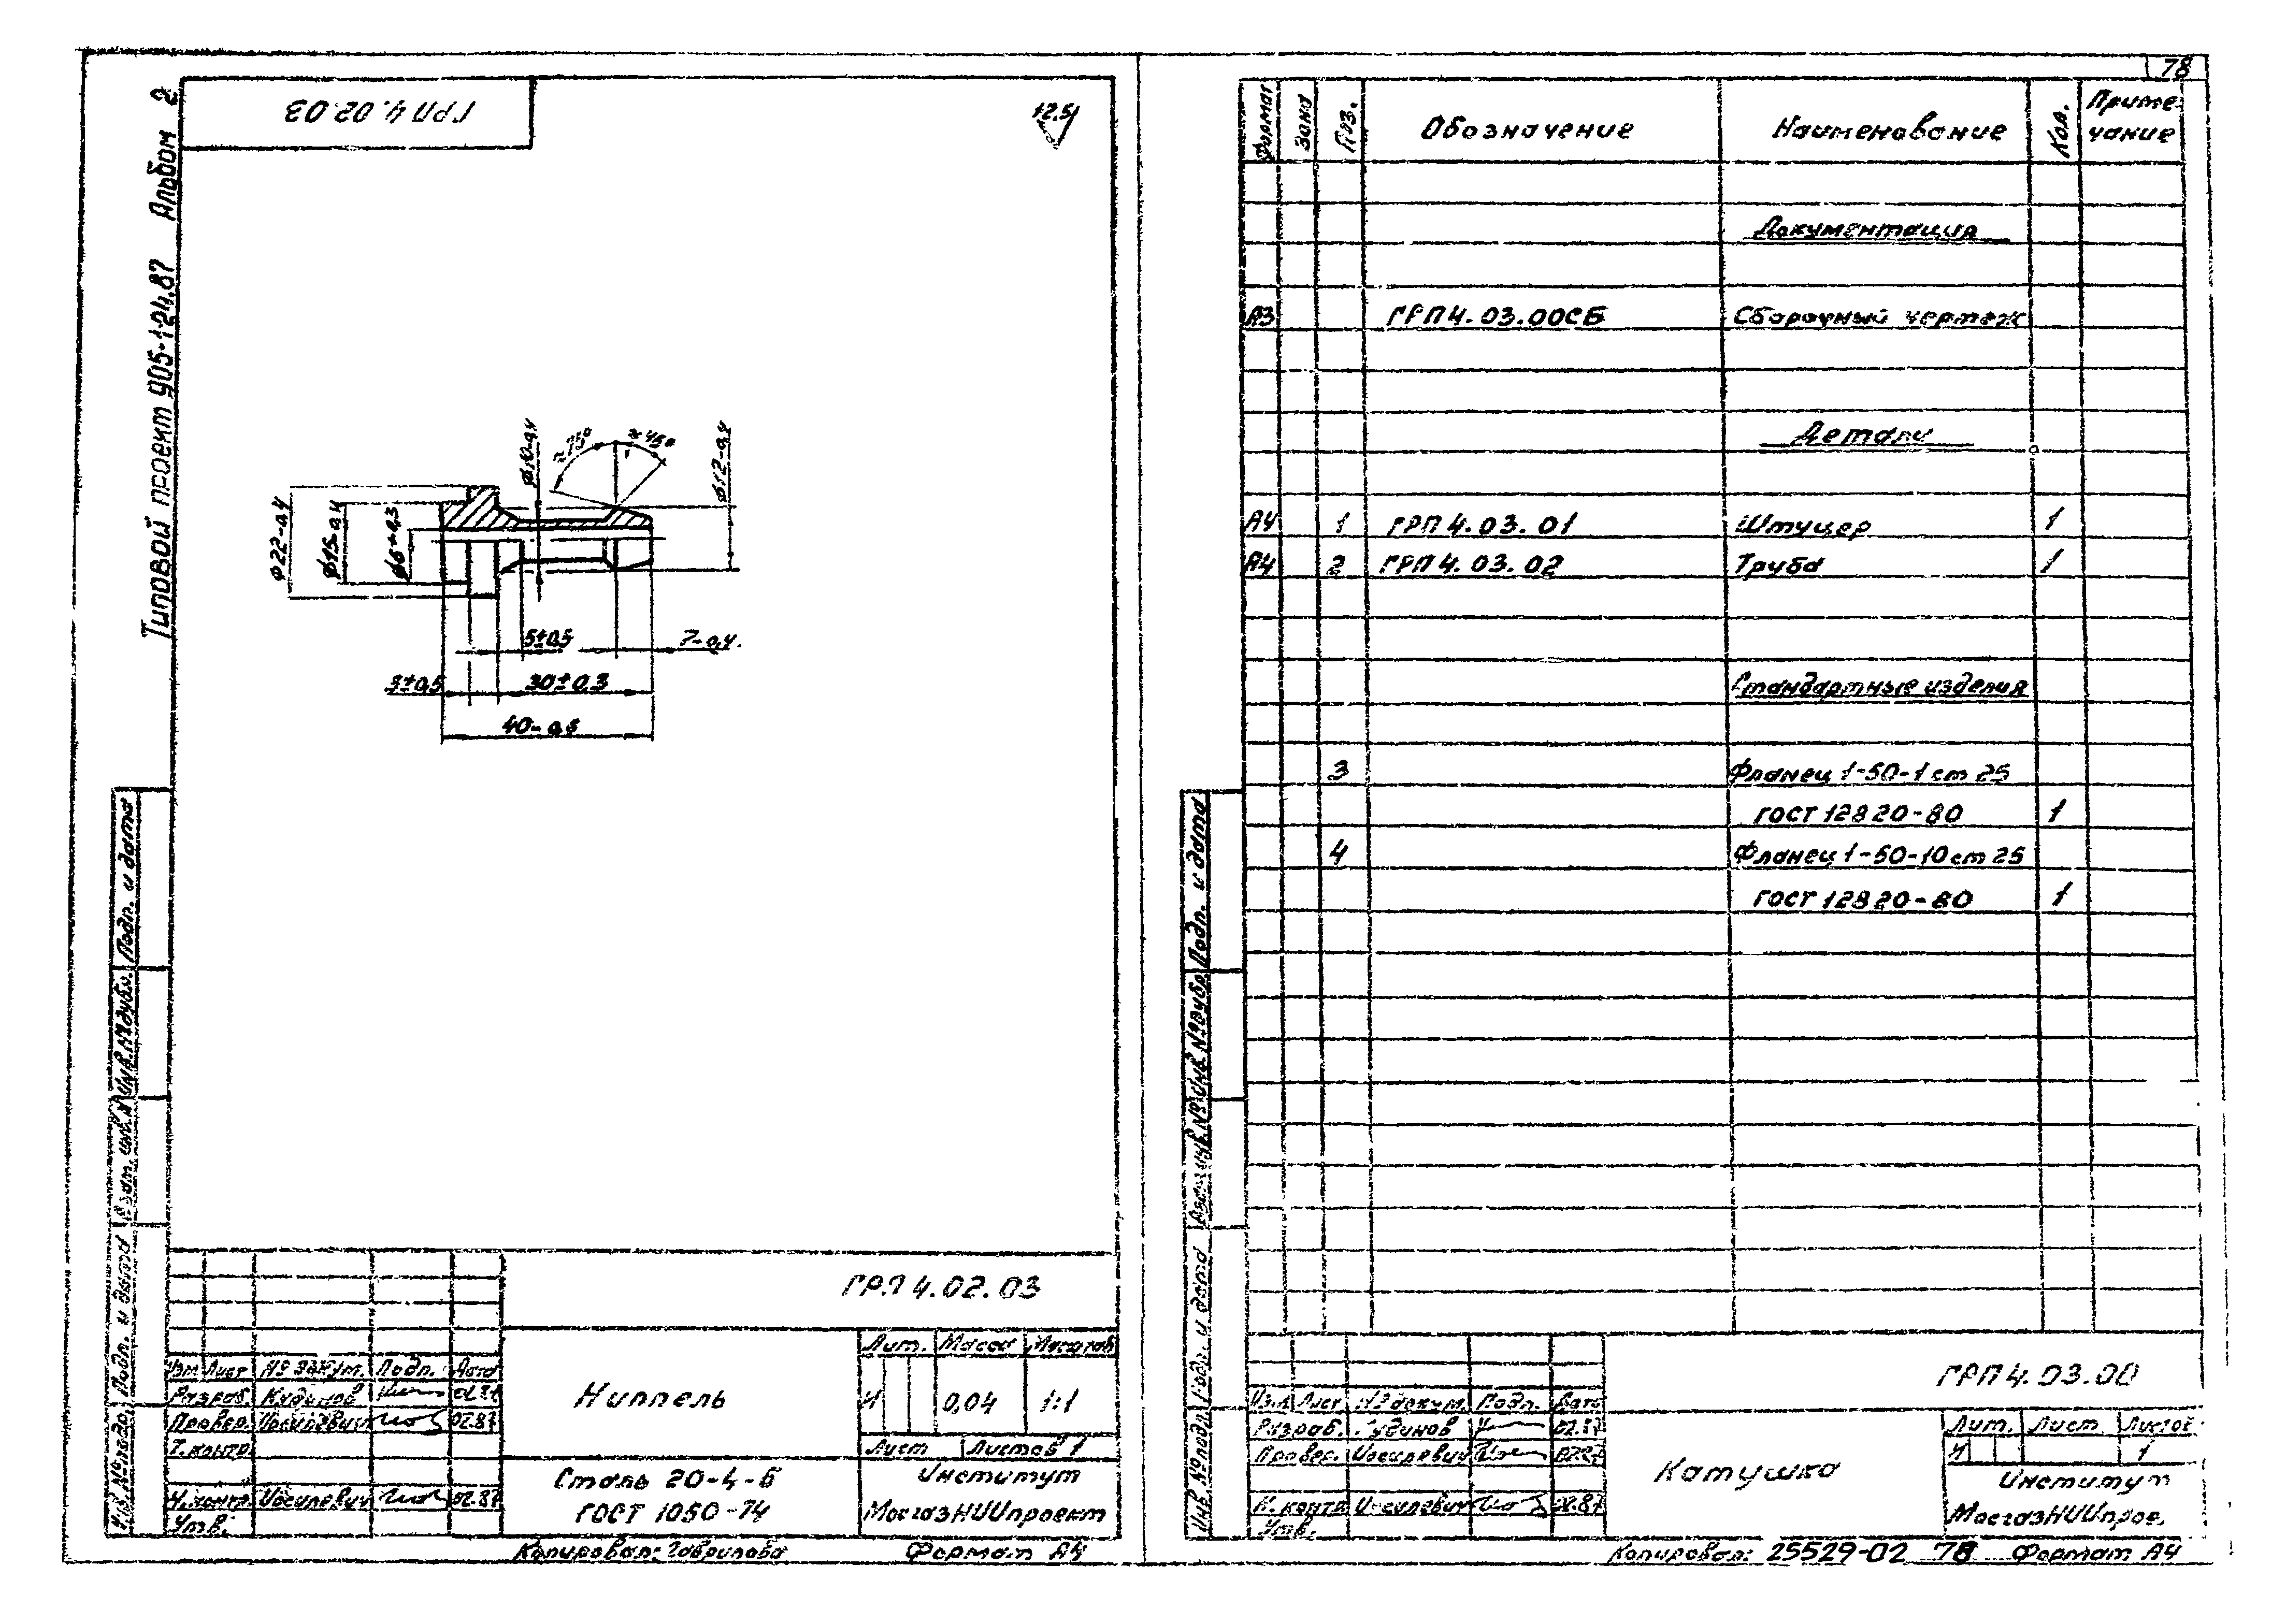 78
Типовой проект 905-1-24.87 Альбом 2
ГРП 4.02.03
12.5
Ф22-0,4
Ф15-0,4
Ф6+0,3
Ф10-0,4
≈75°
≈45°
Ф12-0,4
5±0,5
7-0,4
5±0,5
30±0,3
40-0,5
Подп. и дата
Инв.№дубл.
Взам. инв.№
Подп. и дата
Инв.№подл.
ГРП 4.02.03
Изм. Лист № докум. Подп. Дата
Разраб. Кудинов 02.87
Провер. Иосилевич 02.87
Т.контр.
Н.контр. Иосилевич 02.87
Утв.
Ниппель
Лит. Масса Масштаб
И 0,04 1:1
Лист Листов 1
Сталь 20-4-Б
ГОСТ 1050-74
Институт
МосгазНИИпроект
Копировал: Гаврилова Формат А4
Формат Зона Поз. Обозначение Наименование Кол. Приме-
чание
Документация
А3 ГРП 4.03.00СБ Сборочный чертеж
Детали
А4 1 ГРП 4.03.01 Штуцер 1
А4 2 ГРП 4.03.02 Труба 1
Стандартные изделия
3 Фланец 1-50-1 ст 25
ГОСТ 12820-80 1
4 Фланец 1-50-10 ст 25
ГОСТ 12820-80 1
Подп. и дата
Инв.№дубл.
Взам. инв.№
Подп. и дата
Инв.№подл.
ГРП 4.03.00
Изм. Лист № докум. Подп. Дата
Разраб. Кудинов 02.87
Провер. Иосилевич 02.87
Н.контр. Иосилевич 02.87
Утв.
Катушка
Лит. Лист Листов
И 1
Институт
МосгазНИИпрое.
Копировал: 25529-02 78 Формат А4